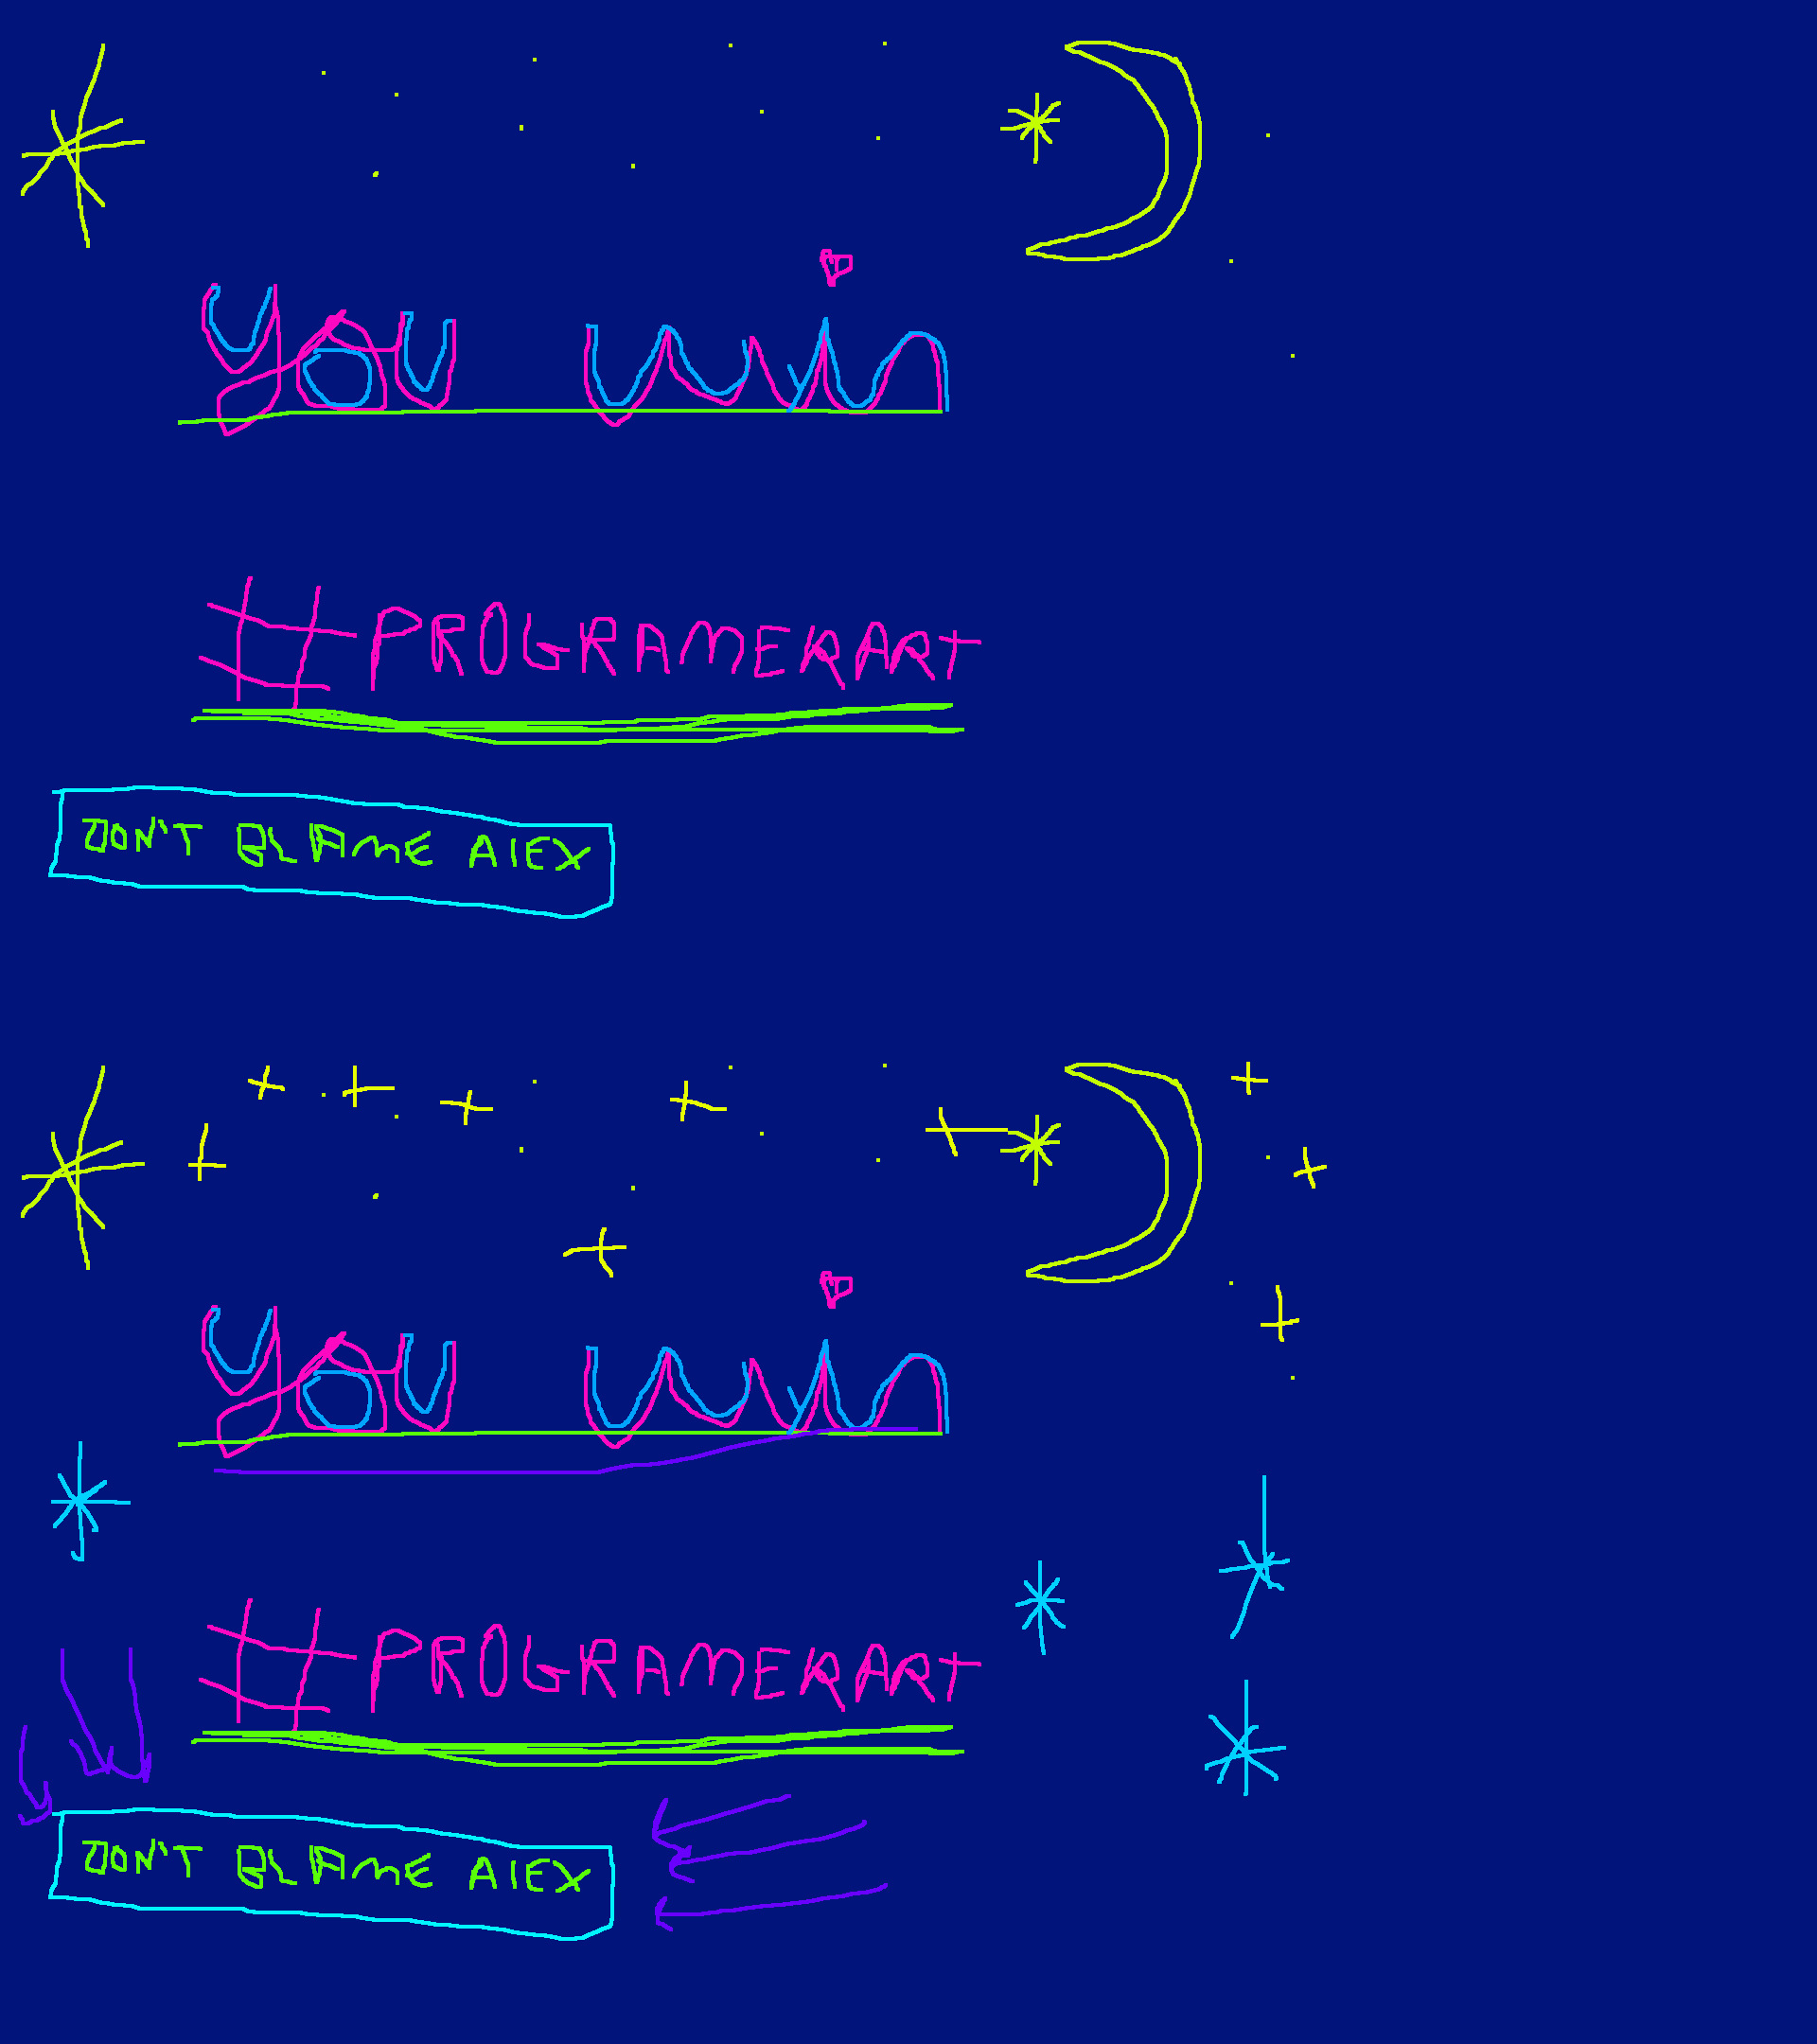 you win
#PROGRAMERART
DON'T BLAME AlEX
you win
#PROGRAMERART
DON'T BLAME AlEX